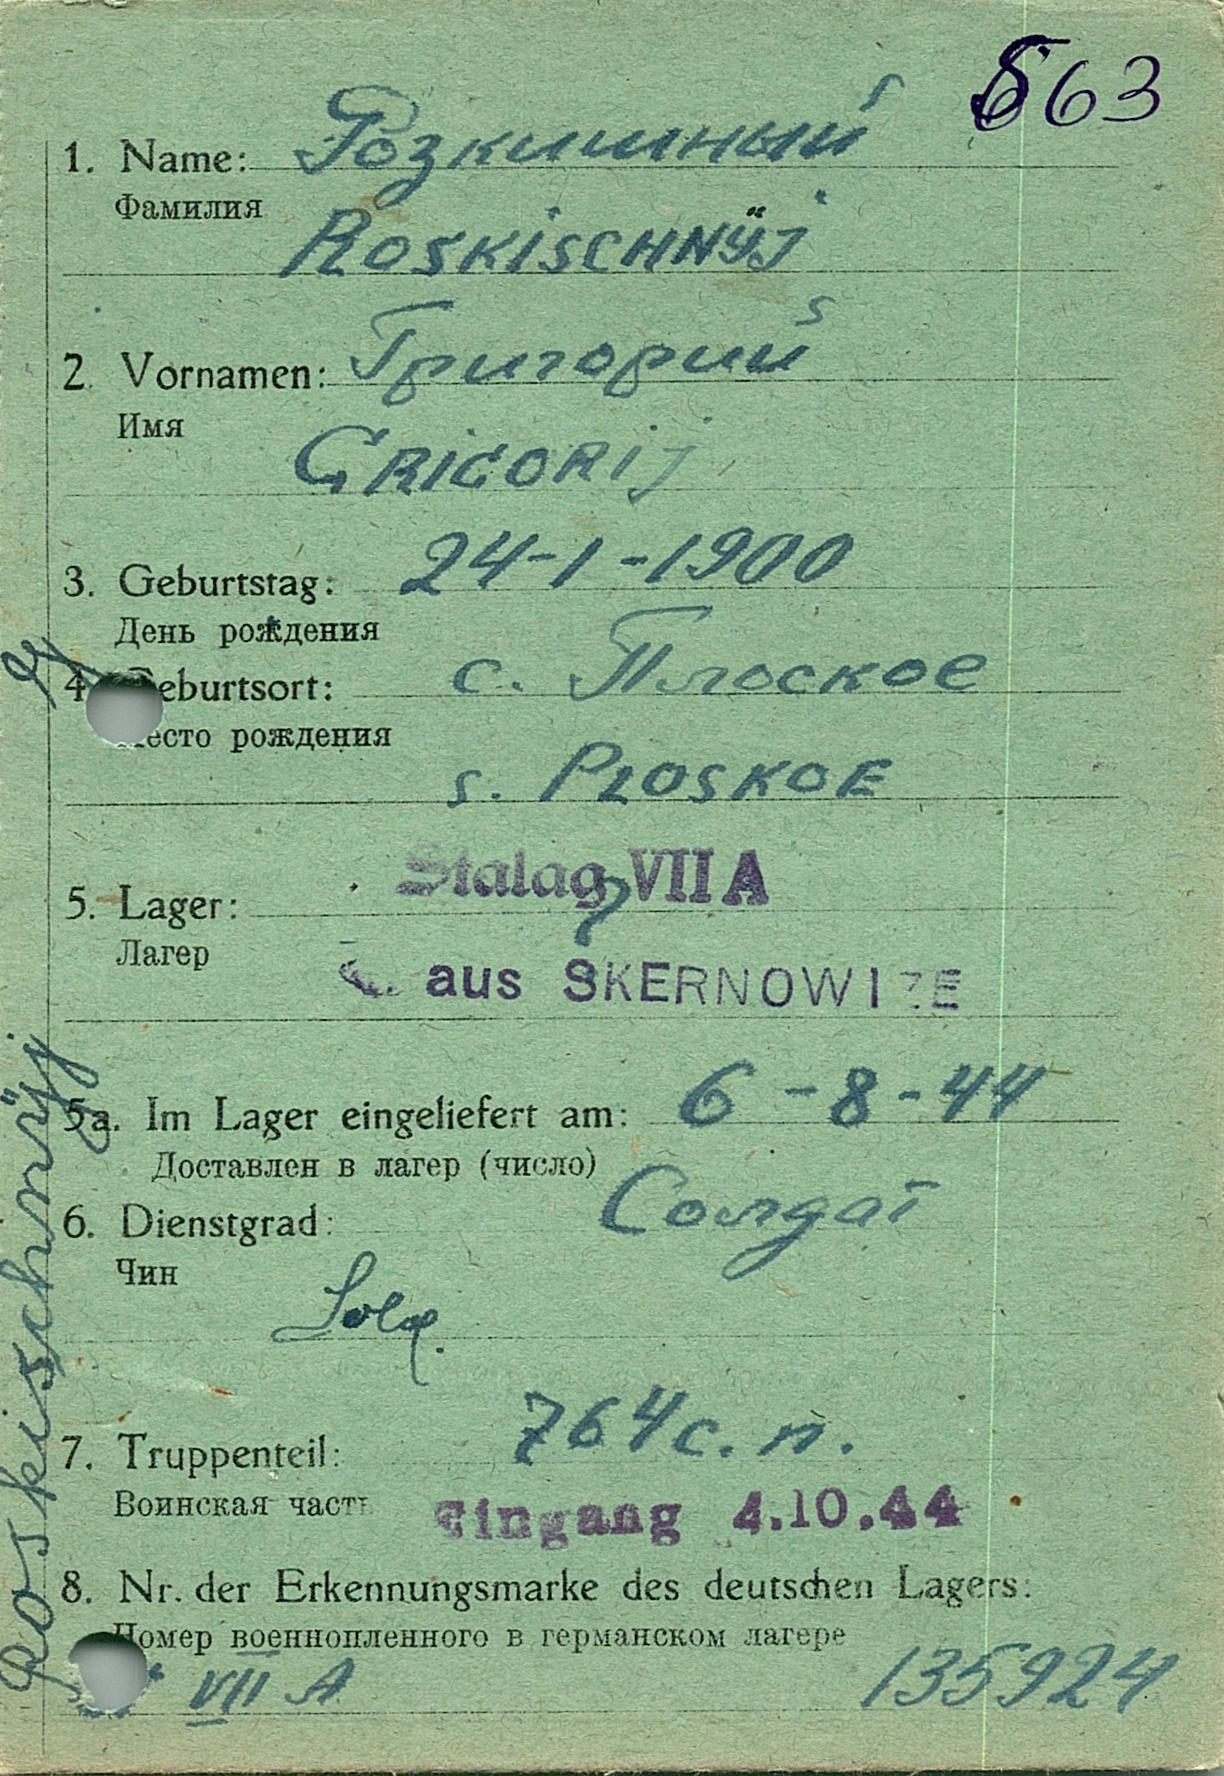 563
1. Name: Розкишный
Фамилия
ROSKISCHNÿJ
2. Vornamen: Григорий
Имя
GRIGORIJ
3. Geburtstag: 24-1-1900
День рождения
4. Geburtsort: с. Плоское
Место рождения
s. PLOSKOE
5. Lager: Stalag VII A
Лагер
aus SKERNOWIZE
5a. Im Lager eingeliefert am: 6-8-44
Доставлен в лагер (число)
6. Dienstgrad: Солдат
Чин
Sold.
7. Truppenteil: 764 с. п.
Воинская часть
Eingang 4.10.44
8. Nr. der Erkennungsmarke des deutschen Lagers:
Номер военнопленного в германском лагере
VII A 135924
Roskischnÿj